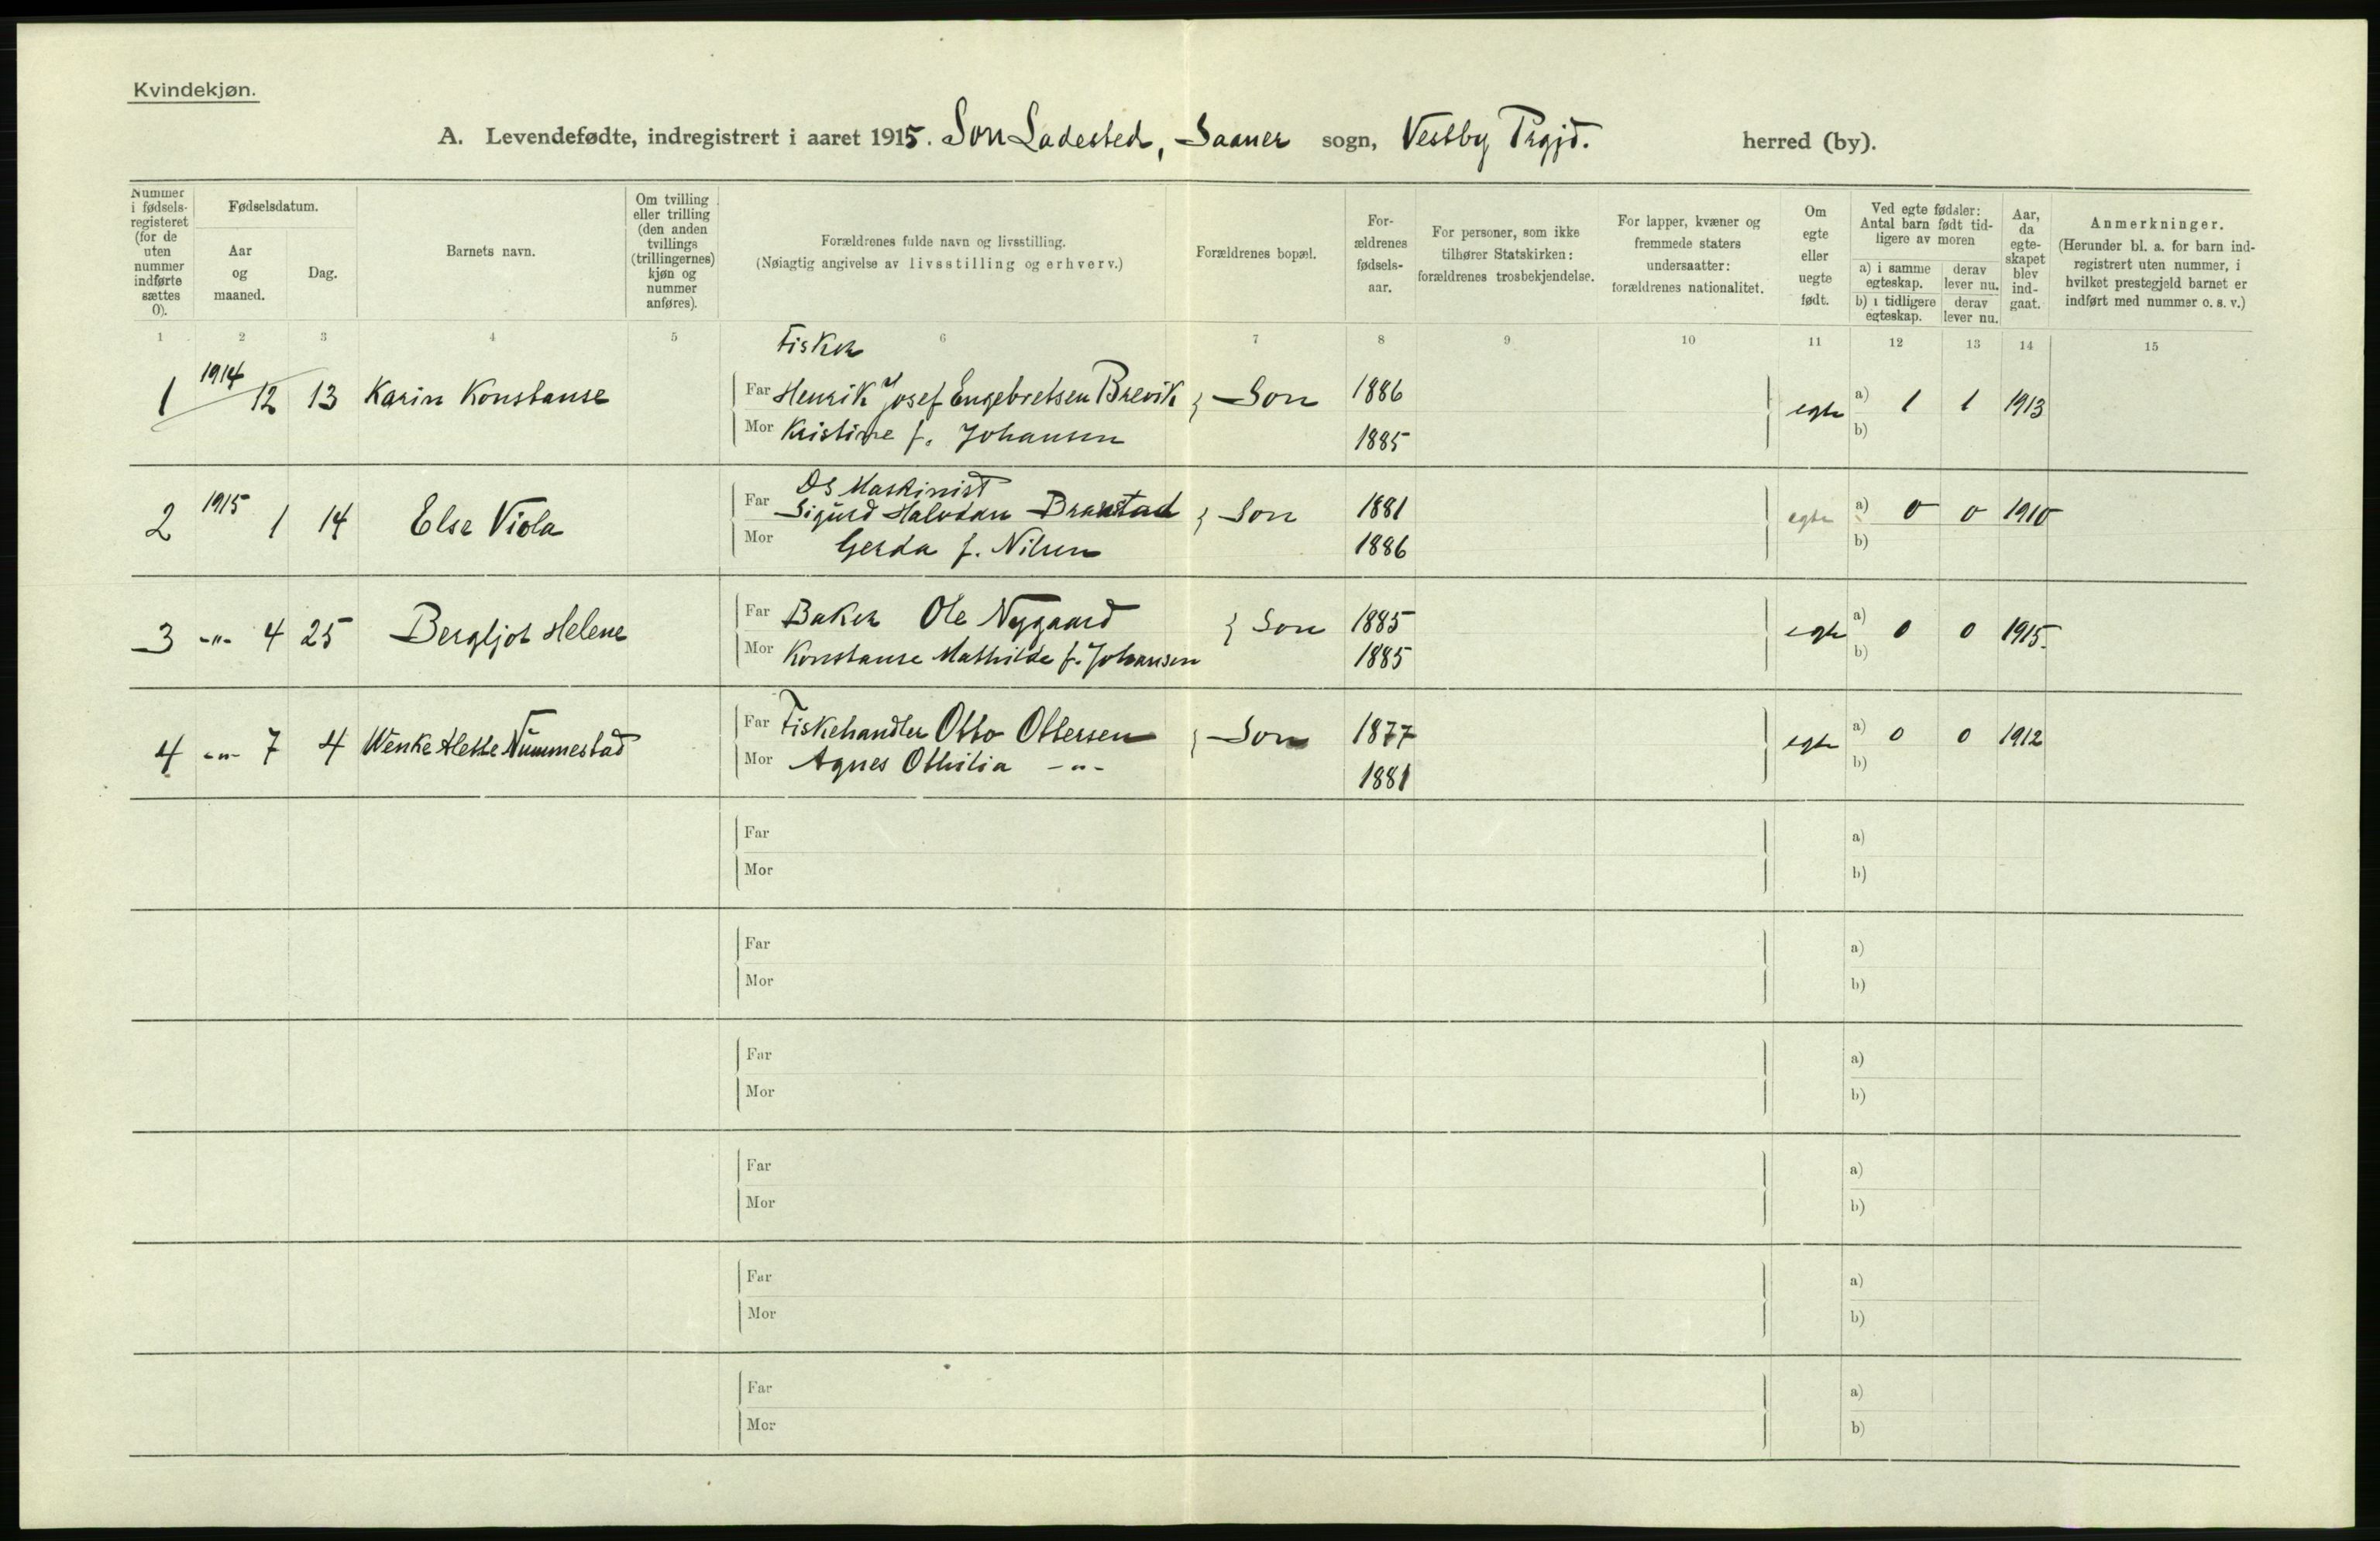 Kvindekjøn.
A. Levendefødte, indregistrert i aaret 1915. Son Ladested, Saaner sogn, Vestby Prgjd. herred (by).
Nummer i fødsels-registeret (for de uten nummer indførte sættes 0).
Fødselsdatum.
Aar og maaned.
Dag.
Barnets navn.
Om tvilling eller trilling (den anden tvillings (trillingernes) kjøn og nummer anføres).
Forældrenes fulde navn og livsstilling.
(Nøiagtig angivelse av livsstilling og erhverv.)
Forældrenes bopæl.
For-ældrenes fødsels-aar.
For personer, som ikke tilhører Statskirken: forældrenes trosbekjendelse.
For lapper, kvæner og fremmede staters undersaatter: forældrenes nationalitet.
Om egte eller uegte født.
Ved egte fødsler: Antal barn født tid-ligere av moren
a) i samme egteskap. derav lever nu.
b) i tidligere egteskap. derav lever nu.
Aar, da egte-skapet blev ind-gaat.
Anmerkninger.
(Herunder bl. a. for barn ind-registrert uten nummer, i hvilket prestegjeld barnet er indført med nummer o. s. v.)
1 2 3 4 5 6 7 8 9 10 11 12 13 14 15
Fisker
1 1914 12 13 Karin Konstanse Far Henrik Josef Engebretsen Brevik } Son 1886 egte a) 1 1 1913
Mor Kristine f. Johansen 1885 b)
DS Maskinist
2 1915 1 14 Else Viola Far Sigurd Halvdan Braastad } Son 1881 egte a) 0 0 1910
Mor Gerda f. Nilsen 1886 b)
3 -"- 4 25 Bergljot Helene Far Baker Ole Nygaard } Son 1885 egte a) 0 0 1915.
Mor Konstanse Mathilde f. Johansen 1885 b)
4 -"- 7 4 Wenke Mette Nummestad Far Fiskehandler Otto Ottersen } Son 1877 egte a) 0 0 1912
Mor Agnes Othilia -"- 1881 b)
Far a)
Mor b)
Far a)
Mor b)
Far a)
Mor b)
Far a)
Mor b)
Far a)
Mor b)
Far a)
Mor b)